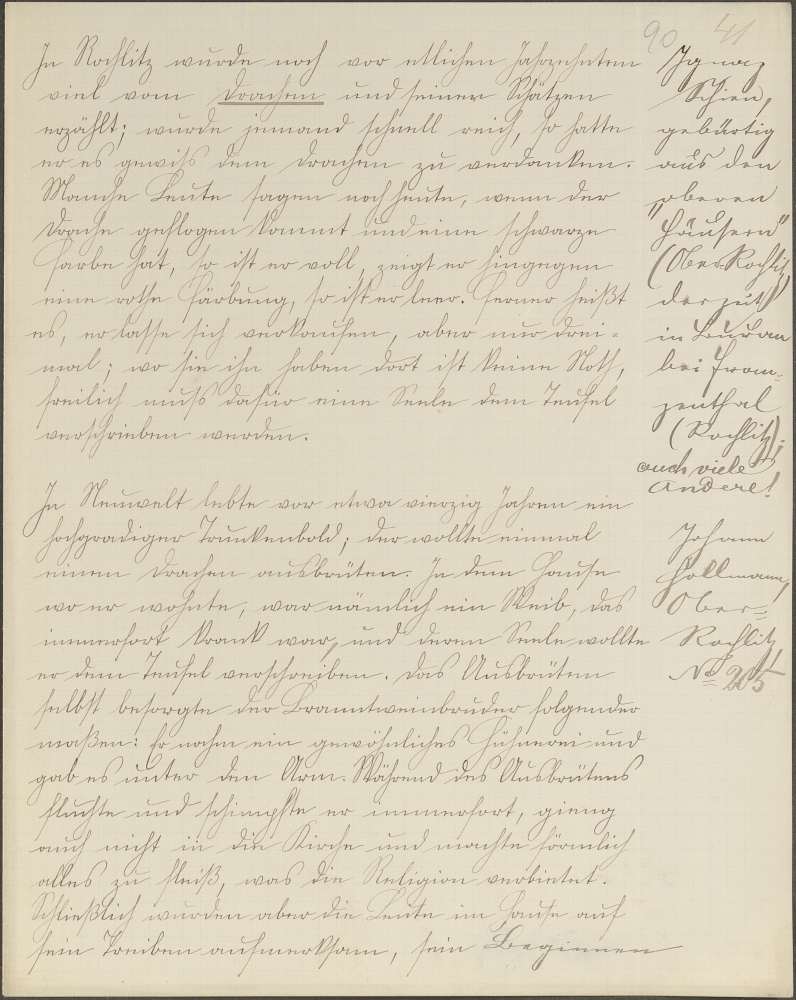 90 41
In Rochlitz wurde noch vor etlichen Jahrzehnten
viel vom Drachen und seinen Schätzen
erzählt; wurde jemand schnell reich, so hatte
er es gewiß dem Drachen zu verdanken.
Manche Leute sagen noch heute, wenn der
Drache geflogen kommt und eine schwarze
Farbe hat, so ist er voll, zeigt er hingegen
eine rothe Färbung, so ist er leer. Ferner heißt
es, er lasse sich verkaufen, aber nur drei-
mal; wo sie ihn haben dort ist keine Noth,
freilich muß dafür eine Seele dem Teufel
verschrieben werden.
Ignaz
Schien,
gebürtig
aus den
"oberen
Häusern"
(Ober-Rochlitz)
derzeit
in Buran
bei Fran-
zenthal
(Rochlitz);
auch viele
Andere!
In Neuwelt lebte vor etwa vierzig Jahren ein
hochgradiger Trunkenbold; der wollte einmal
einen Drachen ausbrüten. In dem Hause
wo er wohnte, war nämlich ein Weib, das
immerfort krank war, und deren Seele wollte
er dem Teufel verschreiben. Das Ausbrüten
selbst besorgte der Branntweinbruder folgender
maßen: Er nahm ein gewöhnliches Hühnerei und
gab es unter den Arm. Während des Ausbrütens
fluchte und schimpfte er immerfort, gieng
auch nicht in die Kirche und machte förmlich
alles zu Fleiß, was die Religion verbietet.
Schließlich wurden aber die Leute im Hause auf
sein Treiben aufmerksam, sein Beginnen
Johann
Hollmann,
Ober-
Rochlitz
No 205